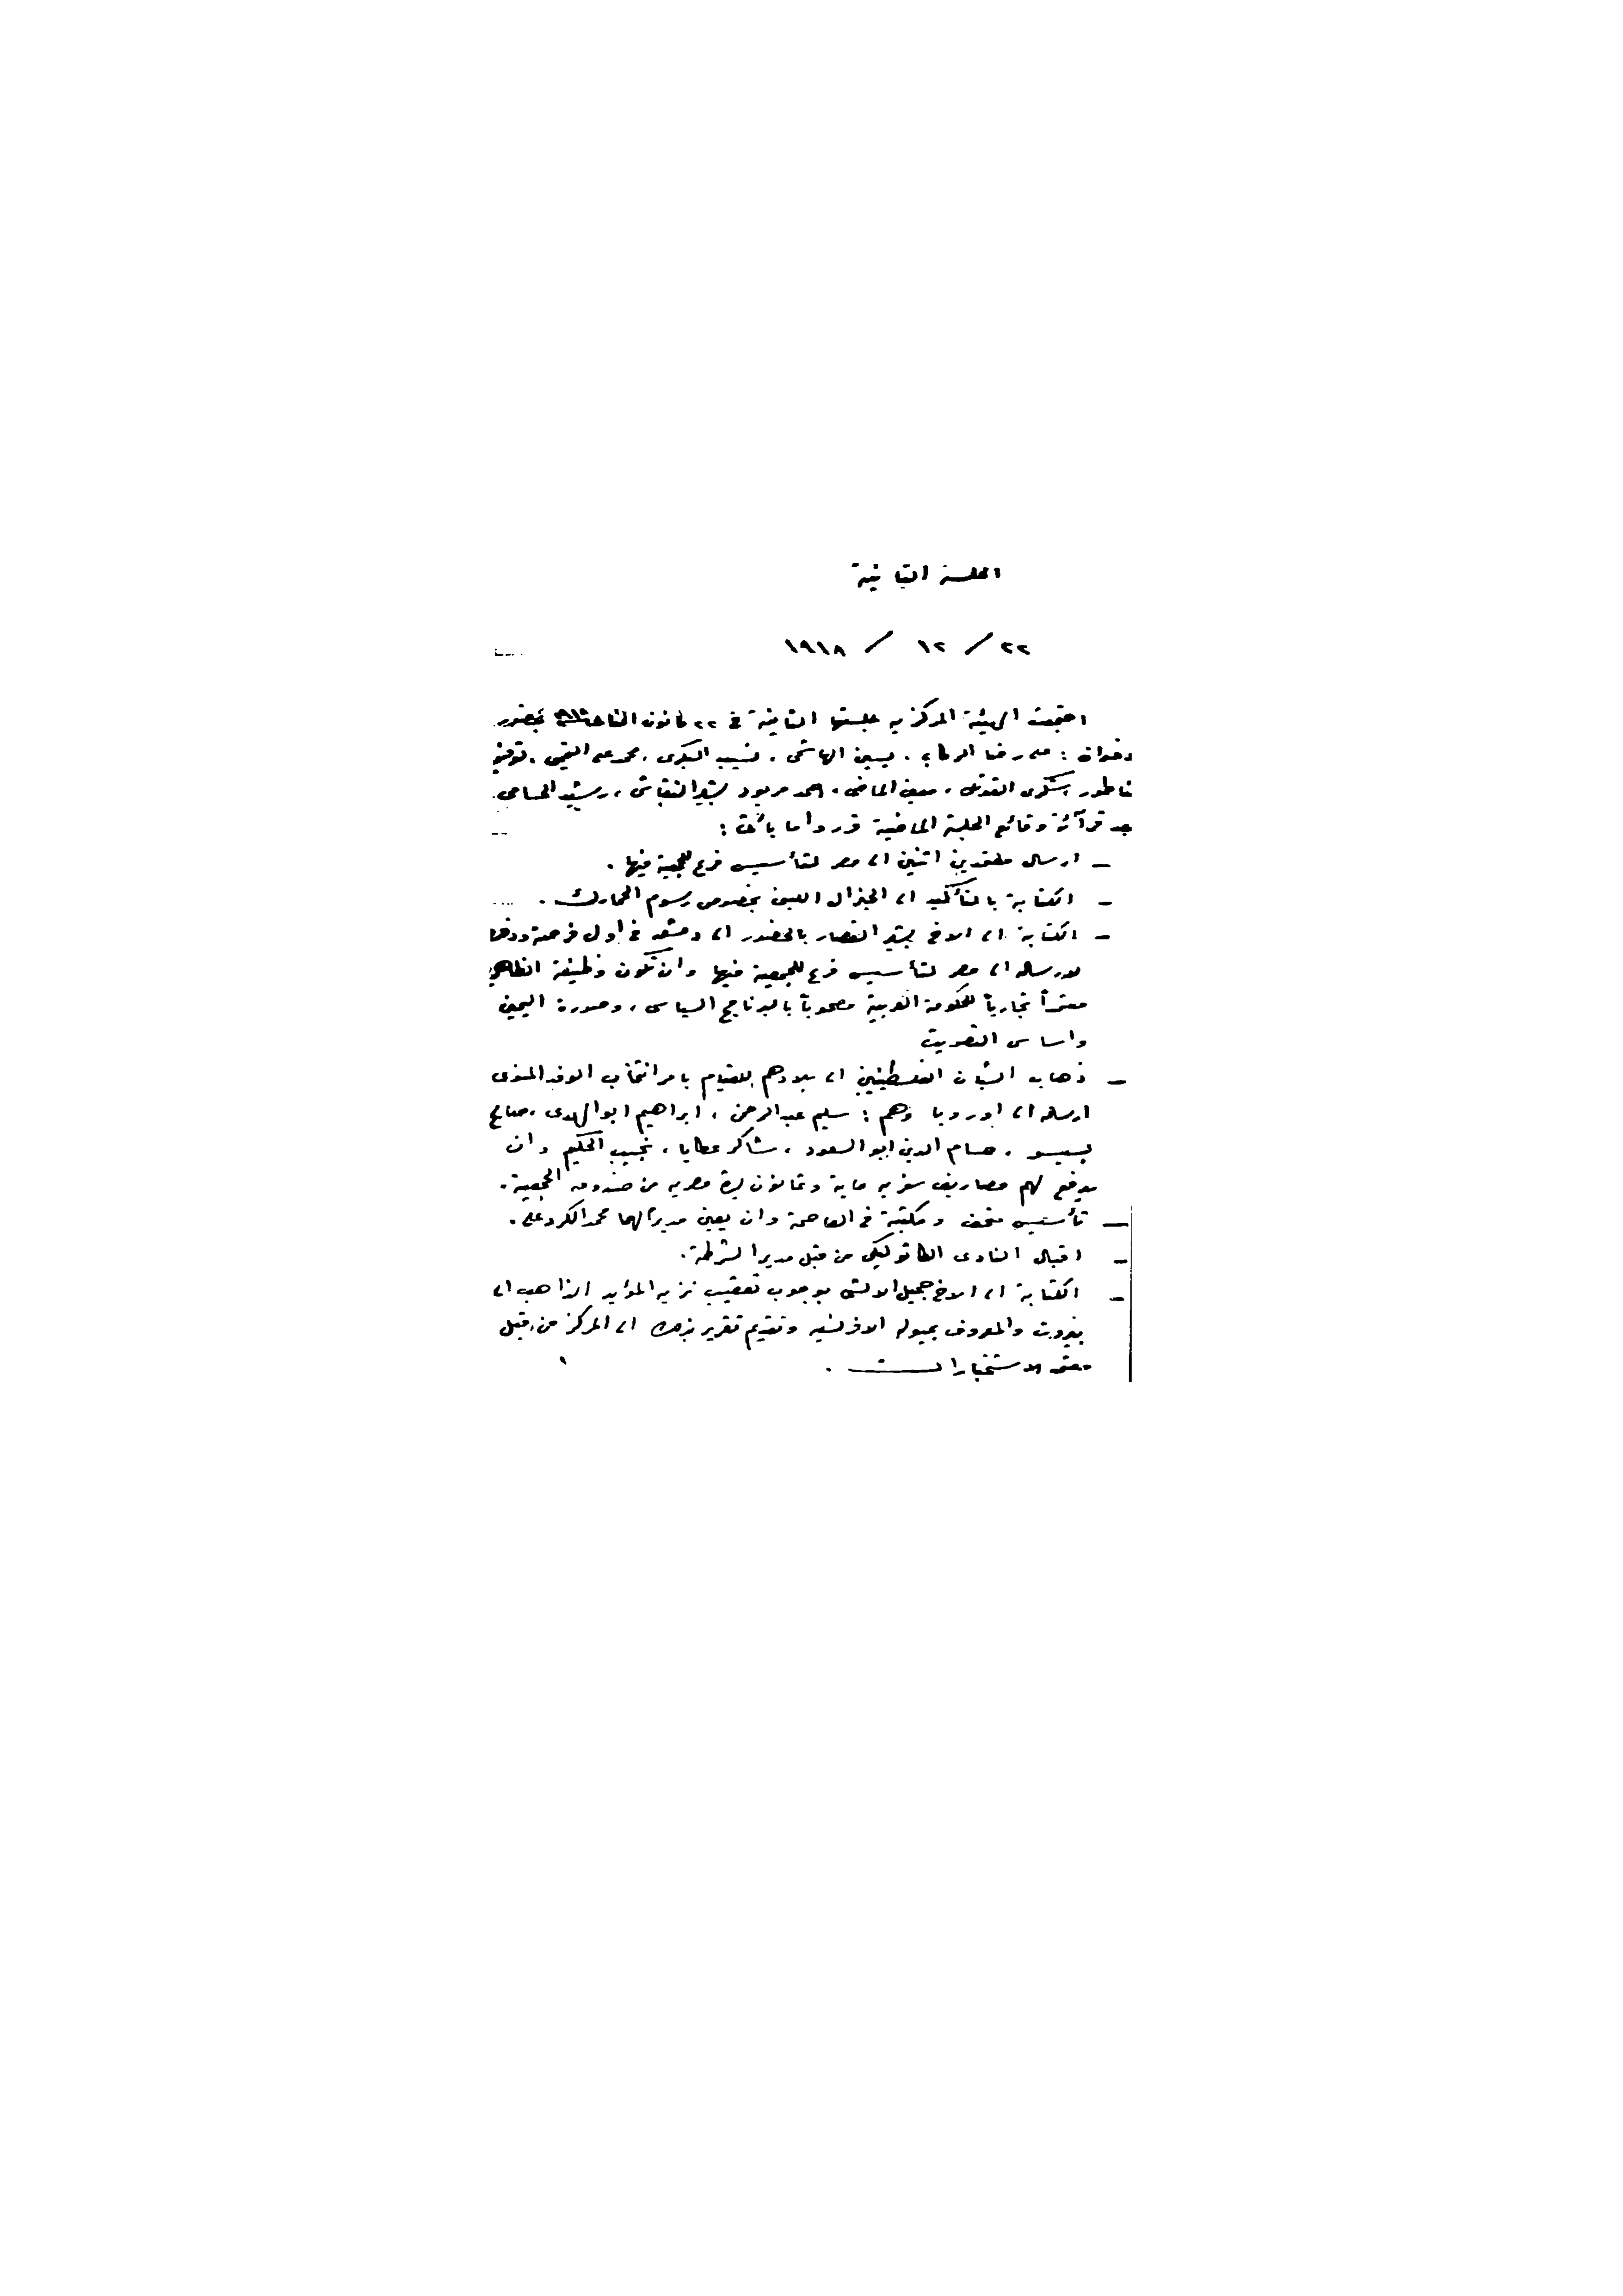 الجلسة الثانية
٢٢ / ١٢ / ١٩١٨
اجتمعت الهيئة المركزيه جلستها الثانية في ٢٢ كانون بحضور
اخوان : على رضا الركابي . يسين الهاشمى . نسيب البكرى . محمد على التميمى . توفيق
ناطور شكرى القوتلى . معين الماضى . احمد مريود بشير النقاش . رشيد الحسامى .
بعد قرآئة وقائع الجلسة الماضية قرروا ما يأتى :
– ارسال معتمدين اثنين الى مصر لتأسيس فرع للجمعية فيها .
– الكتابة بالتأكيد الى الجنرال اللنبى بخصوص رسوم الجمارك .
– الكتابة الى الاخ بشير القصار بالحضور الى دمشق في اول فرصة
لارساله الى مصر لتأسيس فرع للجمعية فيها وان تكون وظيفته
معتمداً تجارياً للحكومة العربية مصحوباً بالبرنامج السياسى ، وصورة اليمين
واساس التصويت
– ذهاب الشبان الفلسطينين الى بلادهم للقيام بامر انتخاب الوفد المنوى
ارساله الى اوروبا وهم : سليم عبد الرحمن ، ابراهيم ابو الهدى ، صالح
بسيسو . حسام الدين ابو السعود ، شاكر عطايا ، نجيب الحكيم وان
يدفع لهم مصاريف سفريه ماية وثمانون ليرة مصريه من صندوق الجمعية .
– تأسيس متحف ومكتبة في العاصمة وان يعين مديراً لهما محمد الكرد على .
– اقبال النادى الكاثوليكى من قبل مدير الشرطة .
– الكتابة الى الاخ جميل الالشى بوجوب تعقيب نزيه المؤيد الذاهب الى
بيروت والمعروف بميوله الافرنسيه وتقديم تقرير بذلك الى المركز من قبل
معتمد الاستخبارات .